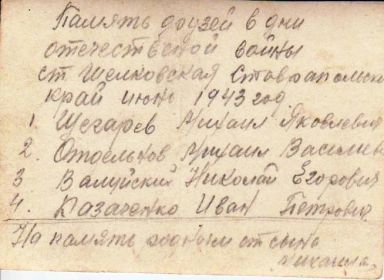 Память друзей в дни
отечественой войны
ст Шелковская Ставропольск
край июнь 1943 год
1. Щегарев Михаил Яковлевич
2. Михаил Василев
3 Валуйский Николай Егорович
4. Казаченко Иван Петрович
На память родным от сына
Михаила.